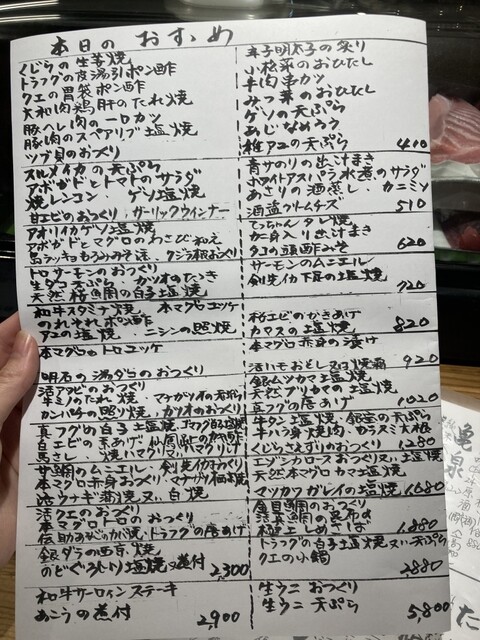 本日の おすすめ
くじらの生姜焼
トラフグの皮湯引ポン酢
クエの胃袋ポン酢
大和肉鶏肝のたれ焼
豚ヘレ肉の一口カツ
豚肉のスペアリブ塩焼
ツブ貝のおつくり
辛子明太子の炙り
小松菜のおひたし
牛肉串カツ
みつ葉のおひたし
ゲソの天ぷら
あじなめろう
稚アユの天ぷら 410
スルメイカの天ぷら
アボガドとトマトのサラダ
焼レンコン、ゲソ塩焼
甘エビのおつくり、ガーリックウィンナー
青サのりの出汁まき
ホワイトアスパラ水煮のサラダ
あさりの酒蒸し、カニミソ
酒盗クリームチーズ 510
アオリイカゲソ塩焼
アボガドとマグロのわさび和え
島ラッキョもろみみそ添、クジラ板おつくり
てっちゃんタレ焼
カニ身入り出汁まき
タコの頭酢みそ 620
トロサーモンのおつくり
生ダコ天ぷら、カツオのたたき
天然桜鯛の白子塩焼
サーモンのムニエル
剣先イカ下足の塩焼 720
和牛スタミナ焼 本マグロユッケ
のれそれポン酢
アユの塩焼 ニシンの照焼
桜エビのかきあげ
カマスの塩焼 820
本マグロトロユッケ
明石の湯ダコのおつくり
本マグロ赤身の漬け
活ハモおとし又は焼霜 920
活アワビのおつくり
羊ミクのたれ焼、マナガツオの天ぷら
カンパチの照り焼、カツオのおつくり
銀ムツカマ塩焼
天然ブリカマ塩焼
真フグの唐あげ 1020
真フグの白子塩焼
白エビの素あげ
馬さし、焼ハマグリ
牛タン塩焼、銀杏の天ぷら
牛ハラミ塩焼肉、カラスミ大根
くじらさえずりのおつくり 1,280
甘鯛のムニエル、剣先イカおつくり
本マグロ赤身おつくり、マナガツオ西京焼
活ウナギ蒲焼又は白焼
天然本マグロカマ塩焼
マツカワガレイの塩焼 1,680
活クエのおつくり
本マグロトロのおつくり
伝助あなごのタレ焼、トラフグの唐あげ
金目鯛のおつくり
極上しめさば 1,880
銀ダラの西京焼
のどぐろ(小)塩焼又は煮付 2,300
トラフグの白子塩焼又は天ぷら
クエの小鍋 2,880
和牛サーロインステーキ
あこうの煮付 2,900
生ウニ おつくり
生ウニ 天ぷら 5,800
亀泉